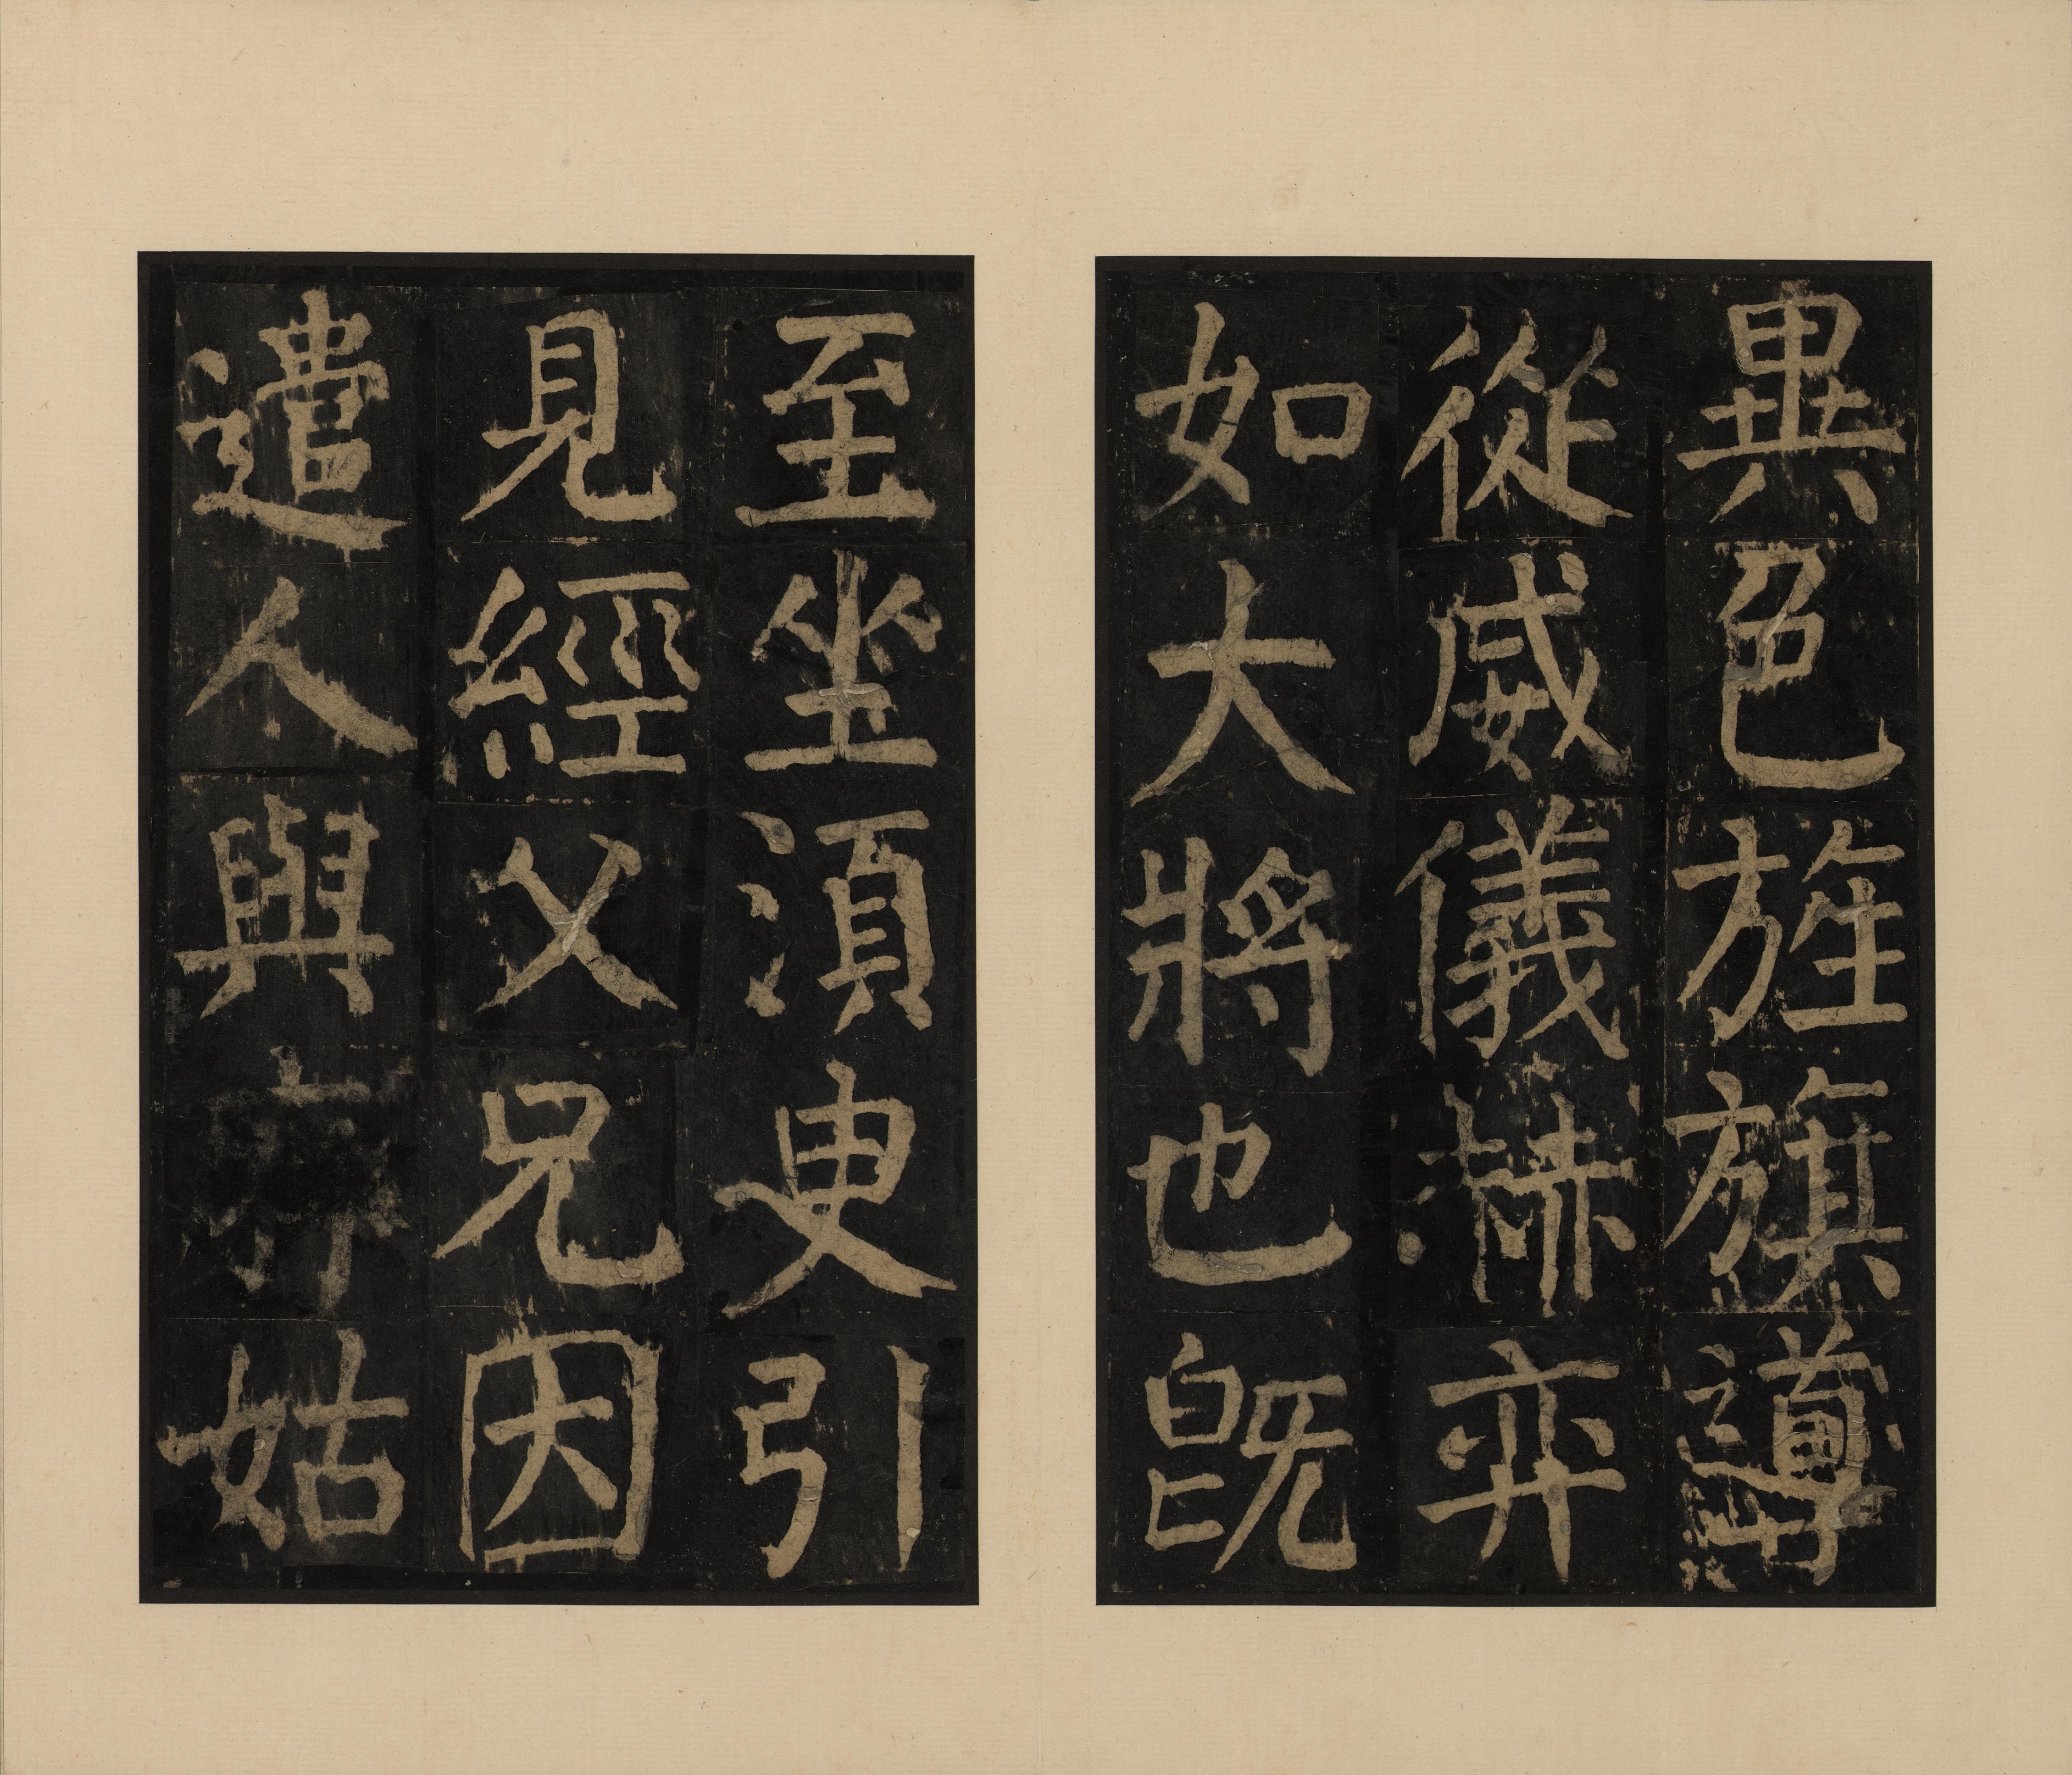 異色旌旗導
從威儀赫弈
如大將也既
至坐須臾引
見經父兄因
遣人與麻姑